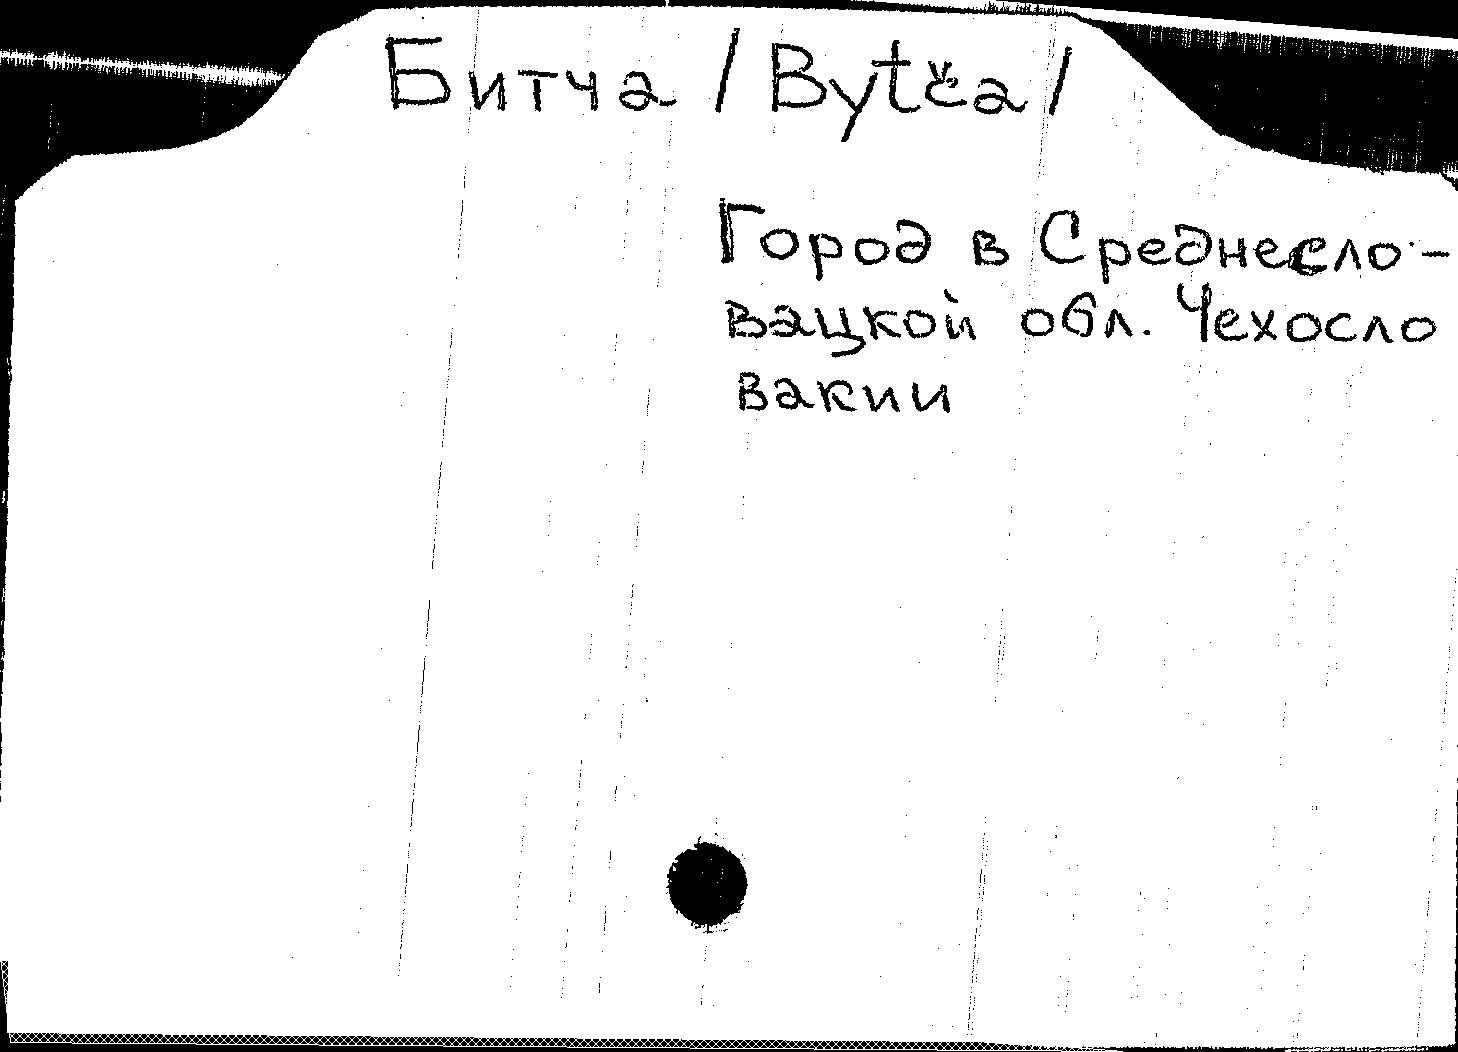 Битча /Bytča/
Город в Среднесло-
вацкой обл. Чехосло
вакии